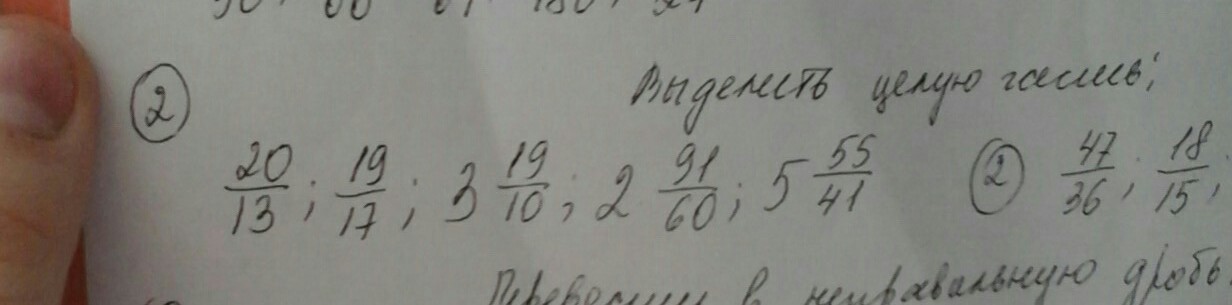 ② Выделить целую часть;
20/13; 19/17; 3 19/10; 2 91/60; 5 55/41 ② 47/36; 18/15;
в неправильную дробь